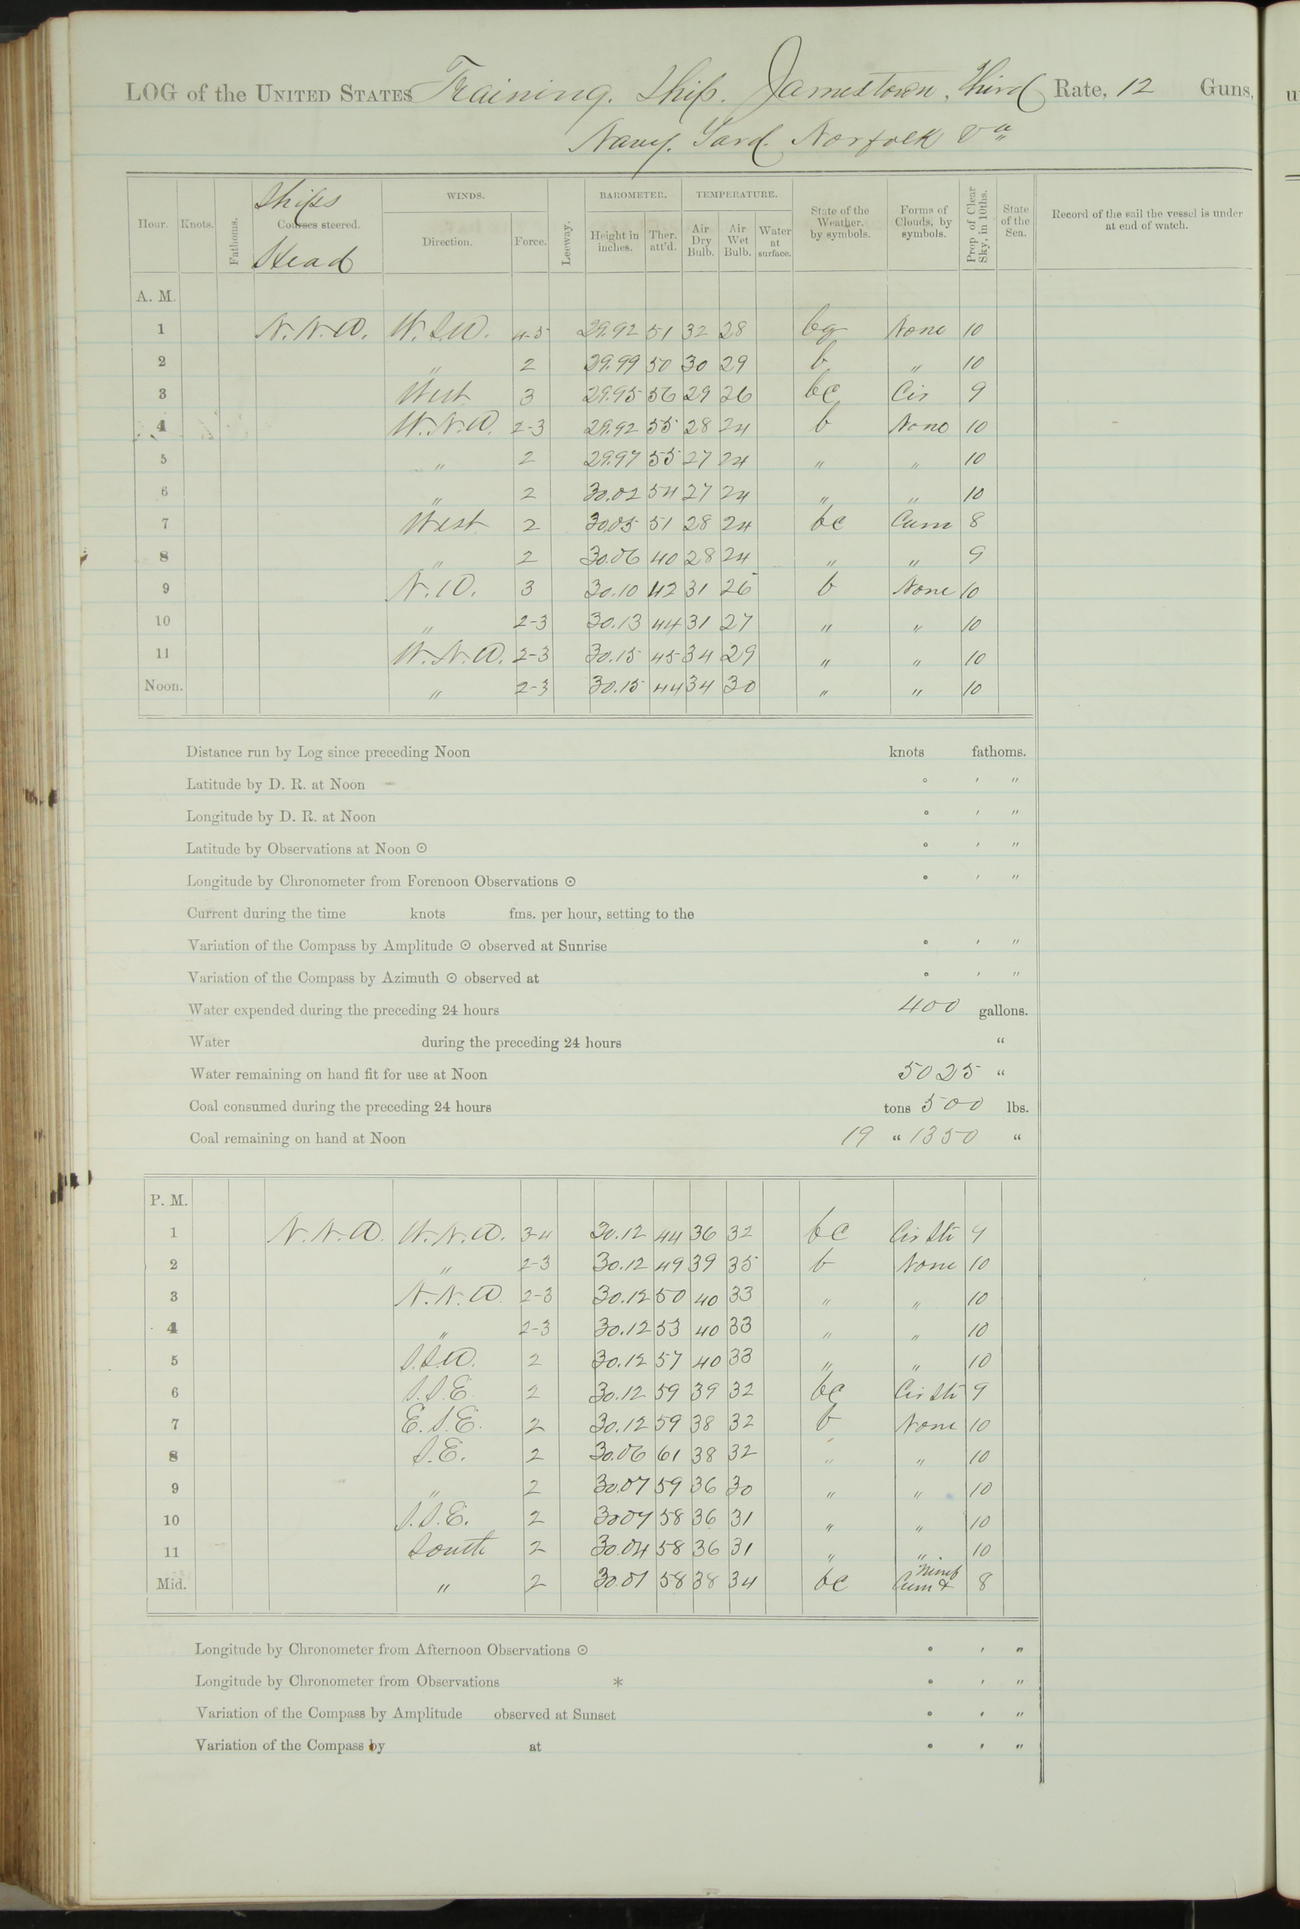 LOG of the UNITED STATES Training Ship Jamestown, Third Rate, 12 Guns,
Navy Yard Norfolk Va
Hour. Knots. Fathoms. Ships Courses steered. Head WINDS. Direction. Force. Leeway. BAROMETER. Height in inches. Ther. att'd. TEMPERATURE. Air Dry Bulb. Air Wet Bulb. Water at surface. State of the Weather, by symbols. Forms of Clouds, by symbols. Prop. of Clear Sky, in 10ths. State of the Sea. Record of the sail the vessel is under at end of watch.
A. M.
1 N.N.W. W.S.W. 4-5 29.92 51 32 28 bg None 10
2 " 2 29.99 50 30 29 b " 10
3 West 3 29.95 56 29 26 bc Cir 9
4 W.N.W. 2-3 29.92 55 28 24 b None 10
5 " 2 29.97 55 27 24 " " 10
6 " 2 30.02 54 27 24 " " 10
7 West 2 30.05 51 28 24 bc Cum 8
8 " 2 30.06 40 28 24 " " 9
9 N.W. 3 30.10 42 31 26 b None 10
10 " 2-3 30.13 44 31 27 " " 10
11 W.N.W. 2-3 30.15 45 34 29 " " 10
Noon. " 2-3 30.15 44 34 30 " " 10
Distance run by Log since preceding Noon knots fathoms.
Latitude by D. R. at Noon ° ' "
Longitude by D. R. at Noon ° ' "
Latitude by Observations at Noon ☉ ° ' "
Longitude by Chronometer from Forenoon Observations ☉ ° ' "
Current during the time knots fms. per hour, setting to the
Variation of the Compass by Amplitude ☉ observed at Sunrise ° ' "
Variation of the Compass by Azimuth ☉ observed at ° ' "
Water expended during the preceding 24 hours 400 gallons.
Water during the preceding 24 hours "
Water remaining on hand fit for use at Noon 5025 "
Coal consumed during the preceding 24 hours tons 500 lbs.
Coal remaining on hand at Noon 19 " 1350 "
P. M.
1 N.N.W. W.N.W. 3-4 30.12 44 36 32 bc Cir Str 9
2 " 2-3 30.12 49 39 35 b None 10
3 N.N.W. 2-3 30.12 50 40 33 " " 10
4 " 2-3 30.12 53 40 33 " " 10
5 S.S.W. 2 30.12 57 40 33 " " 10
6 S.S.E. 2 30.12 59 39 32 bc Cir Str 9
7 E.S.E. 2 30.12 59 38 32 b None 10
8 S.E. 2 30.06 61 38 32 " " 10
9 " 2 30.07 59 36 30 " " 10
10 S.S.E. 2 30.07 58 36 31 " " 10
11 South 2 30.04 58 36 31 " " 10
Mid. " 2 30.01 58 38 34 bc Cum & Nimb 8
Longitude by Chronometer from Afternoon Observations ☉ ° ' "
Longitude by Chronometer from Observations * ° ' "
Variation of the Compass by Amplitude observed at Sunset ° ' "
Variation of the Compass by at ° ' "